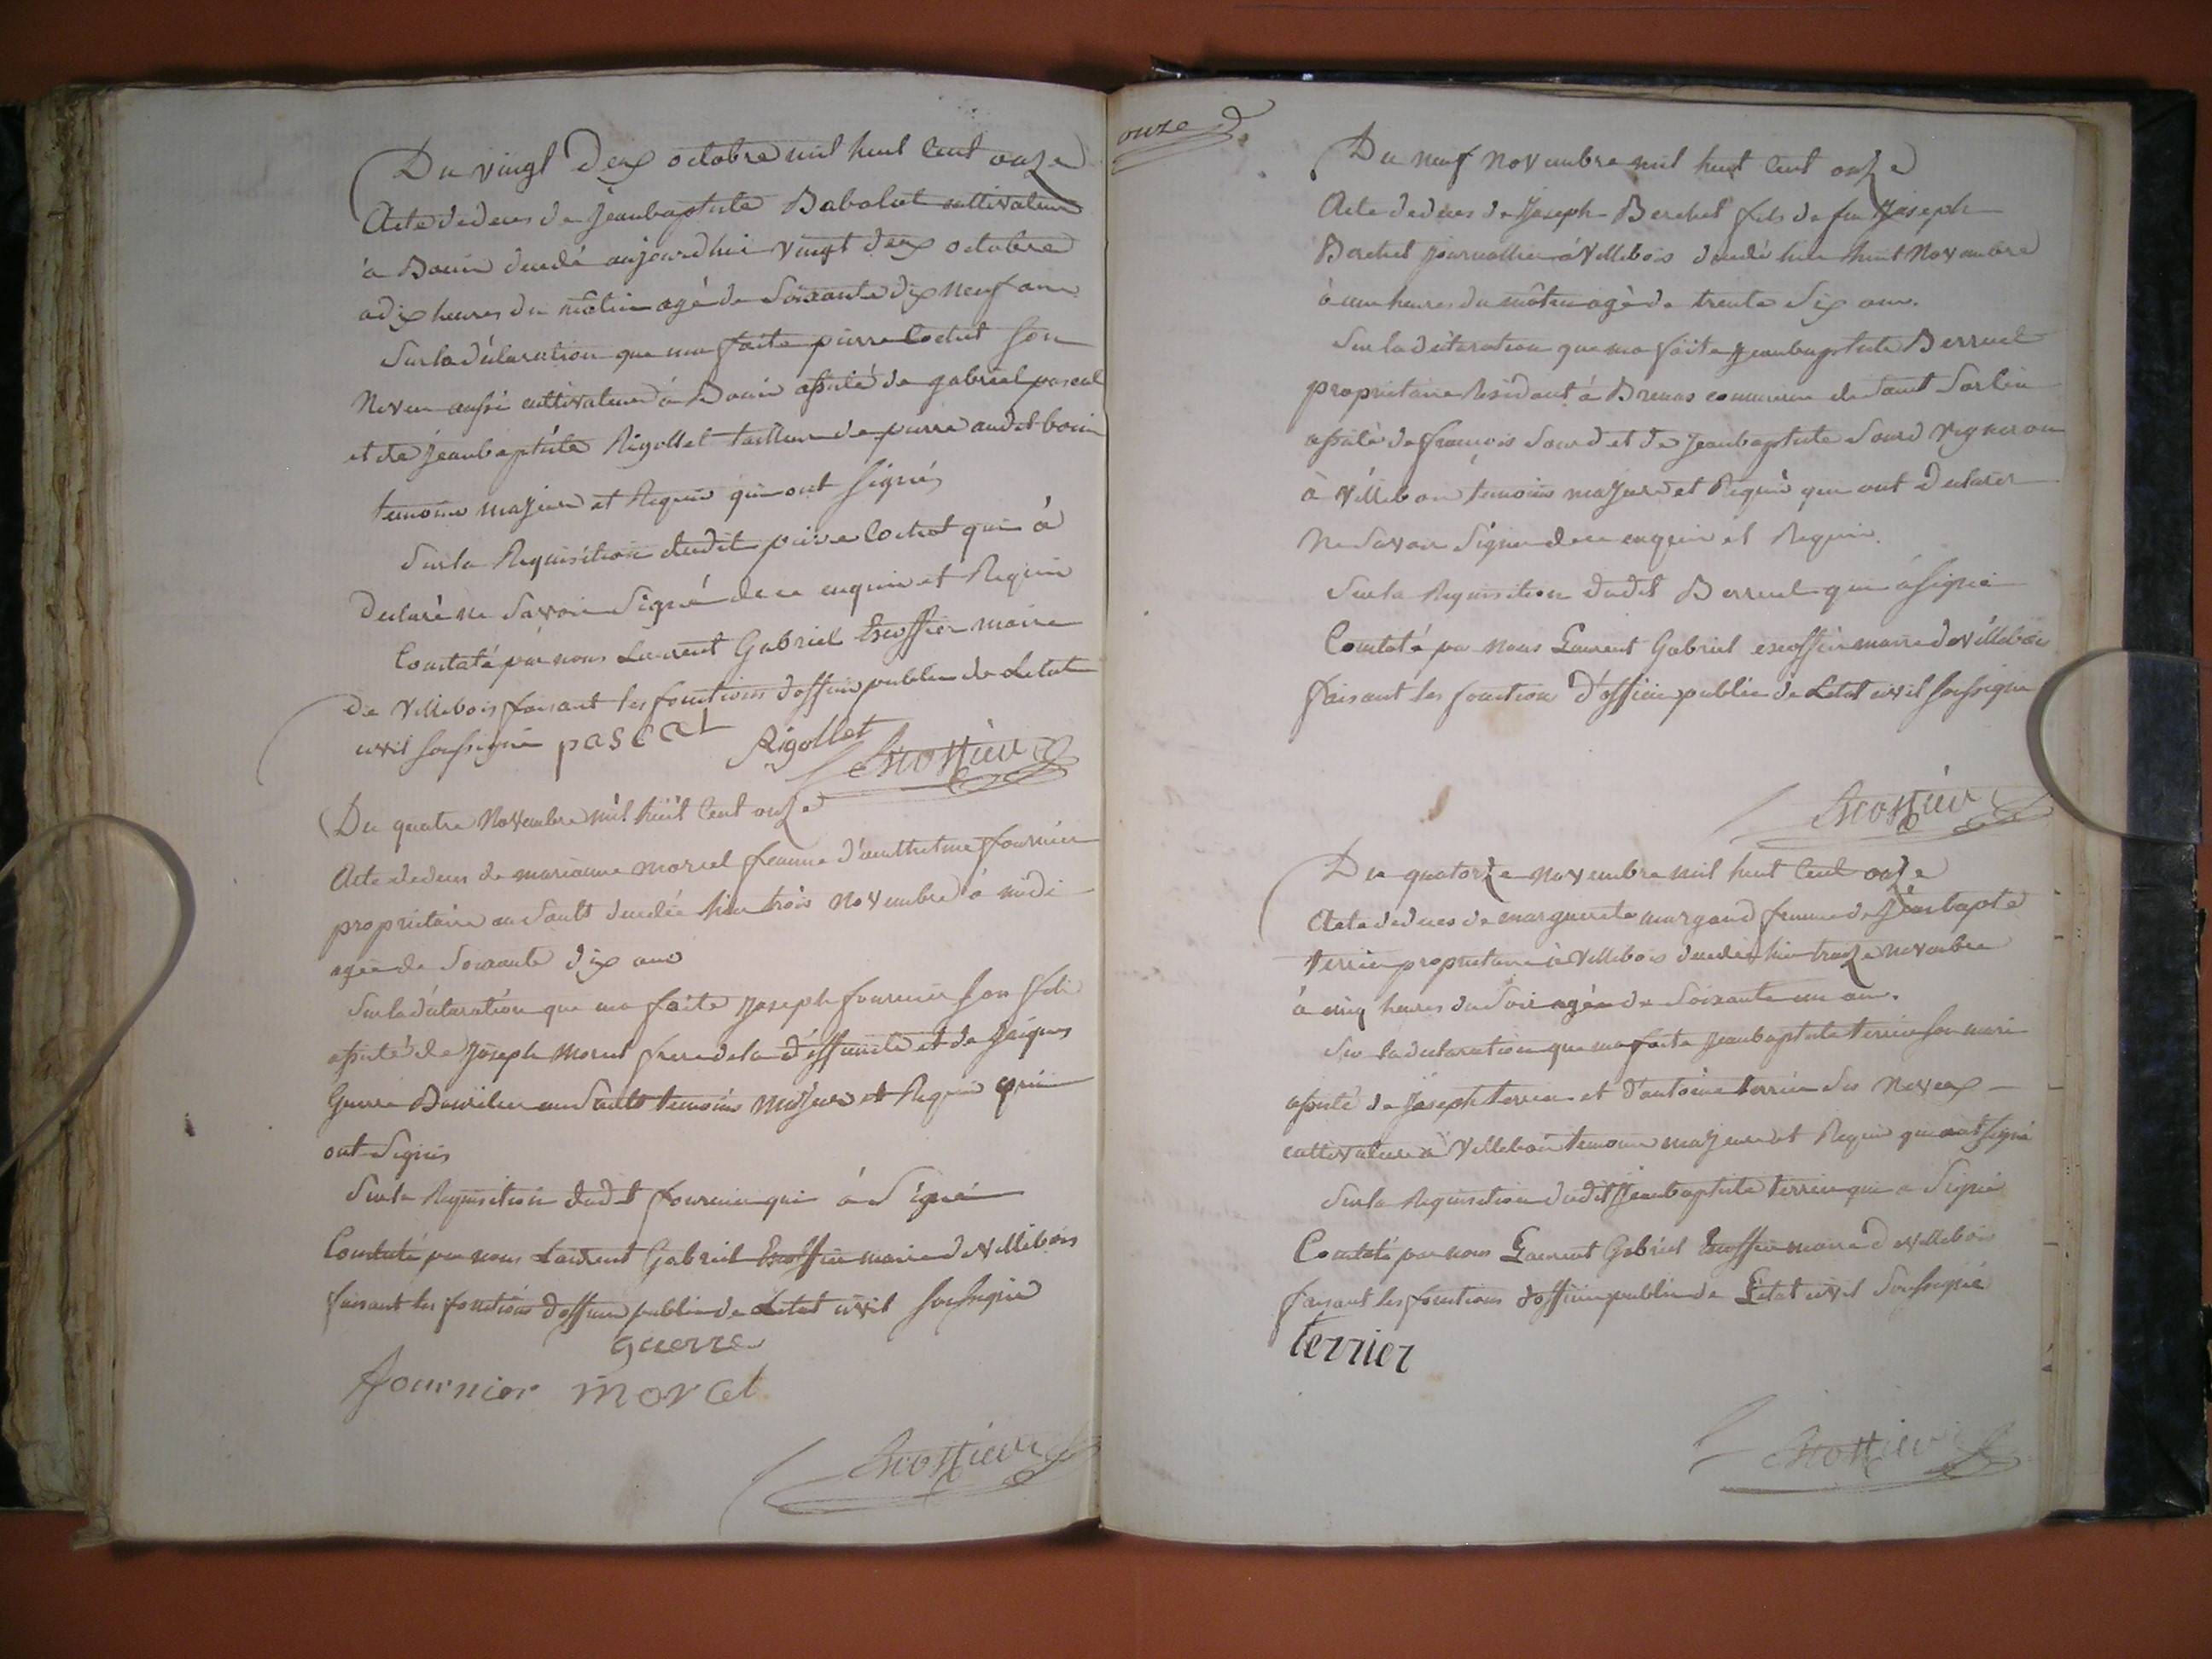 Du vingt deux octobre mil huit Cent onze
Acte de deces de Jeanbaptiste Babolat cultivateur
à Bouis decedé aujourdhui vingt deux octobre
a dix heures du matin agé de Soixante dix neuf ans
Sur la déclaration que ma faite pierre Coctet Son
Neveu aussi cultivateur à Bouis assisté de gabriel pascal
et de jeanbaptiste Rigollet tailleur de pierre audit bouis
temoins majeurs et Requis qui ont Signés
Sur la Requisition dudit pierre Coctet qui à
Declaré ne Savoir Signé de ce enquis et Requis
Constaté par nous Laurent Gabriel Escoffier maire
De Villebois faisant les fonctions d'officier public de Letat
civil soussigné pascal
Rigollet
Escoffier
Du quatre Novembre mil huit Cent onze
Acte de deces de marianne morel femme d'anthelme fournier
propriétaire au Sault decedée hier trois Novembre à midi
agée de Soixante dix ans
Sur la déclaration que ma faite Joseph fournier Son fils
assisté de Joseph Morel frere de la déffunte et de Jaques
Guerre au Sault temoins majeurs et Requis qui
ont Signés
Sur la Requisition dudit fournier qui à Signé
Constaté par nous Laurent Gabriel Escoffier maire de Villebois
faisant les fonctions d'officier public de Letat civil soussigné
guerre
fournier morel
Escoffier
onze
Du neuf Novembre mil huit Cent onze
Acte de deces de Joseph Berchet fils de feu Joseph
Berchet journallier à Villebois decedé hier huit Novembre
à une heures du mâtin agé de trente Six ans.
Sur la déclaration que ma faite jeanbaptiste Berruel
propriétaire Résidant à Brenas commune de Saint Sorlin
assisté de françois Sourd et de Jeanbaptiste Sourd vigneron
à Villebois temoins majeurs et Requis qui ont Declarer
Ne Savoir Signer de ce enquis et Requis.
Sur la Requisition dudit Berruel qui à signé
Constaté par nous Laurent Gabriel escoffier maire de Villebois
faisant les fonctions d'officier public de Letat civil soussigné
Escoffier
Du quatorze novembre mil huit Cent onze
Acte de deces de marguerite margand femme de Jeanbapte
terrier propriétaire à Villebois decedée hier treize novembre
à cinq heures du Soir agée de Soixante un ans.
Sur la declaration que ma faite Jeanbaptiste terrier Son mari
assisté de Joseph terrier et d'antoine terrier Ses Neveux
cultivateurs à Villebois temoins majeurs et Requis qui ont signé
Sur la Requisition dudit Jeanbaptiste terrier qui a Signé
Constaté par nous Laurent Gabriel Escoffier maire de villebois
faisant les fonctions d'officier public de Létat civil Soussigné
terrier
Escoffier